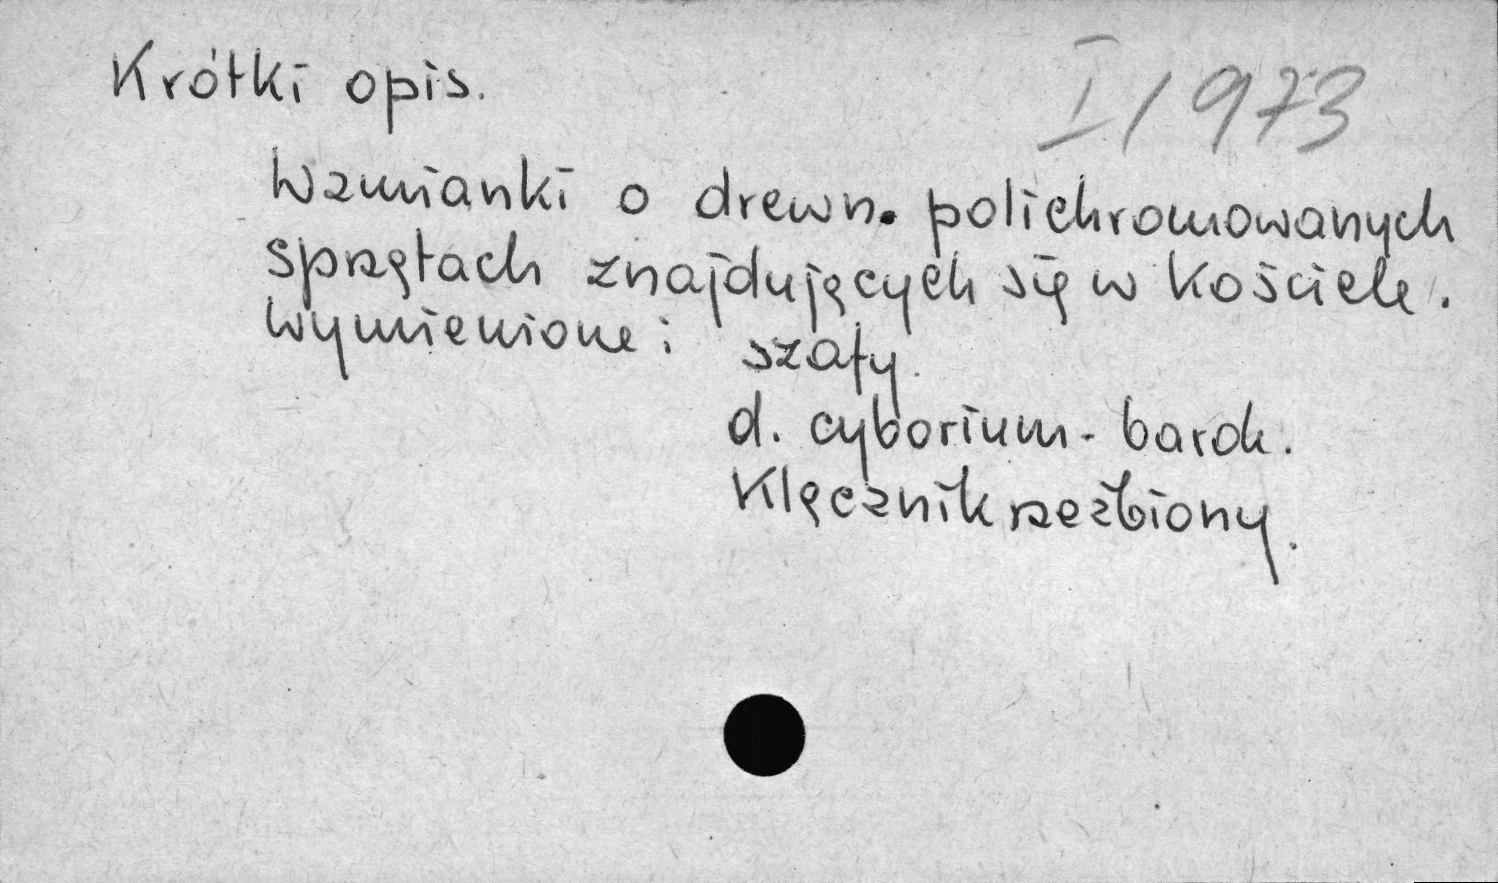 Krótki opis.
I/973
Wzmianki o drewn. polichromowanych
sprzętach znajdujących się w Kościele.
Wymienione: szafy.
d. cyborium - barok.
Klęcznik rzeźbiony.